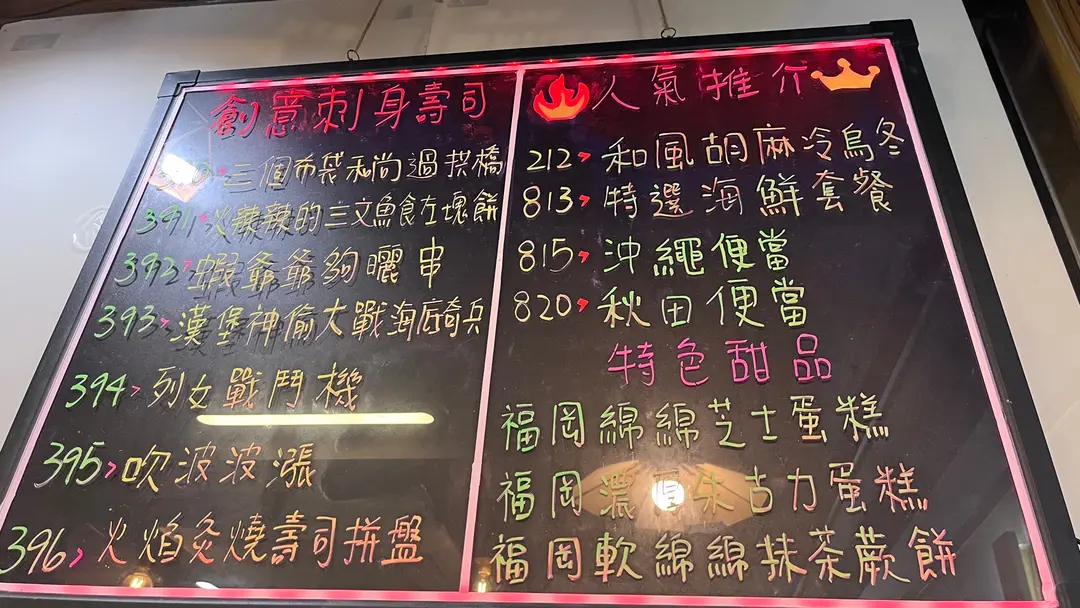 創意刺身壽司
三個布袋和尚過拱橋
391 火辣辣的三文魚食左塊餅
392 蝦爺爺夠曬串
393 漢堡神偷大戰海底奇兵
394 列女戰鬥機
395 吹波波漲
396 火焰灸燒壽司拼盤
人氣推介
212 和風胡麻冷烏冬
813 特選海鮮套餐
815 沖繩便當
820 秋田便當
特色甜品
福岡綿綿芝士蛋糕
福岡濃厚朱古力蛋糕
福岡軟綿綿抹茶蕨餅